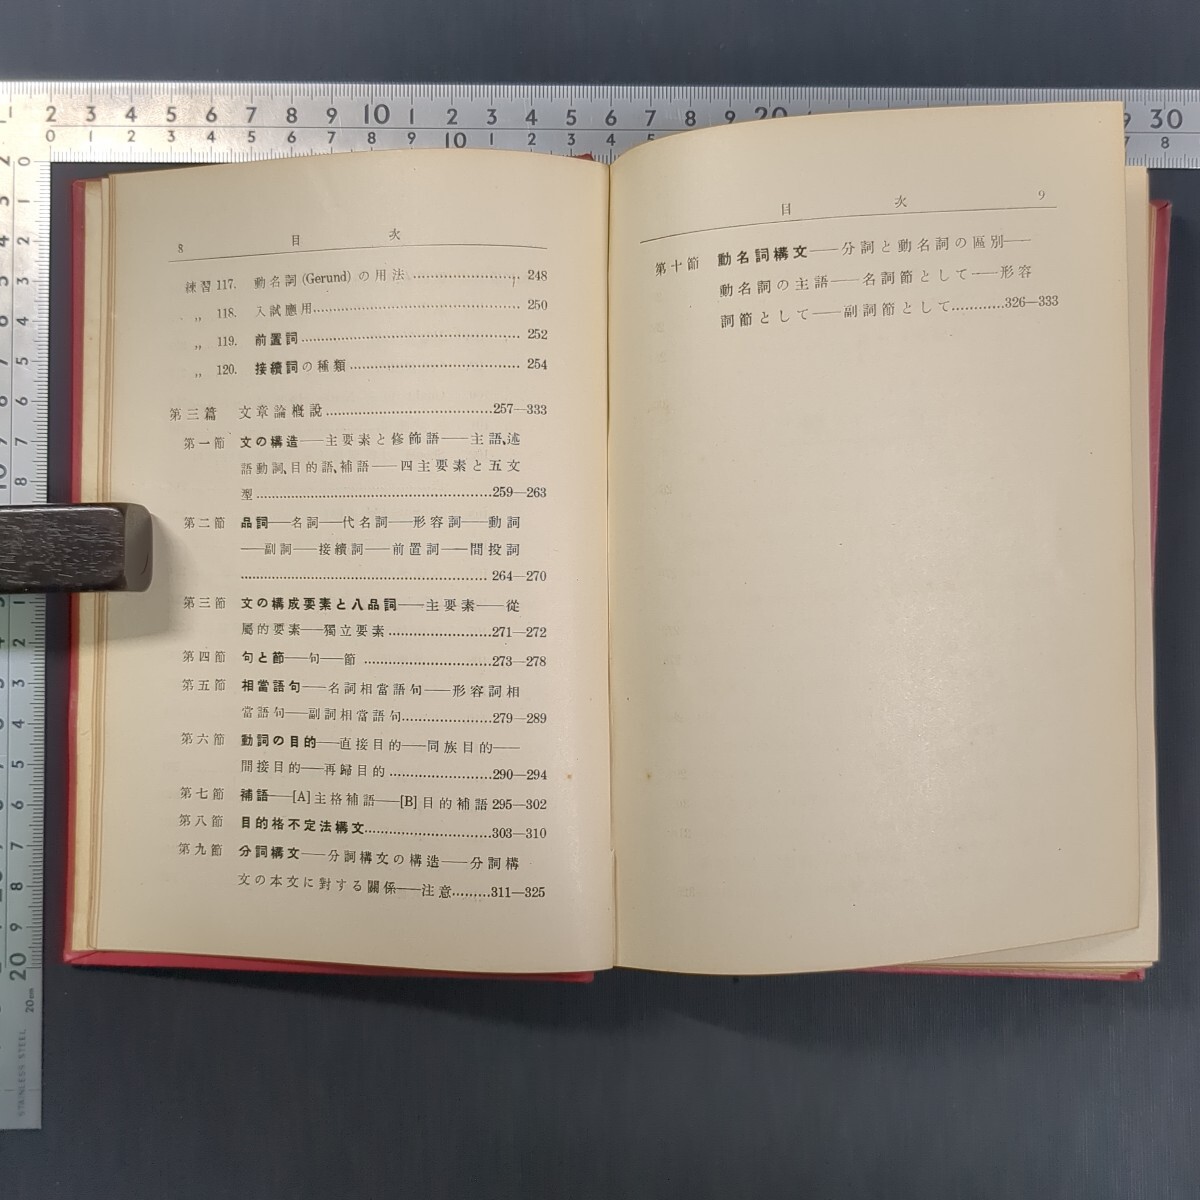 8 目次
練習117. 動名詞(Gerund)の用法 …………………… 248
〃 118. 入試應用…………………………………… 250
〃 119. 前置詞……………………………………… 252
〃 120. 接續詞の種類……………………………… 254
第三篇 文章論槪說……………………………257—333
第一節 文の構造——主要素と修飾語——主語、述
語動詞、目的語、補語——四主要素と五文
型…………………………………………259—263
第二節 品詞——名詞——代名詞——形容詞——動詞
——副詞——接續詞——前置詞——間投詞
…………………………………………… 264—270
第三節 文の構成要素と八品詞——主要素——從
屬的要素——獨立要素……………………271—272
第四節 句と節——句——節 ……………………273—278
第五節 相當語句——名詞相當語句——形容詞相
當語句——副詞相當語句…………………279—289
第六節 動詞の目的——直接目的——同族目的——
間接目的——再歸目的……………………290—294
第七節 補語——[A]主格補語——[B]目的補語 295—302
第八節 目的格不定法構文………………………303—310
第九節 分詞構文——分詞構文の構造——分詞構
文の本文に對する關係——注意………311—325
目次 9
第十節 動名詞構文——分詞と動名詞の區別——
動名詞の主語——名詞節として——形容
詞節として——副詞節として…………326—333
STAINLESS STEEL